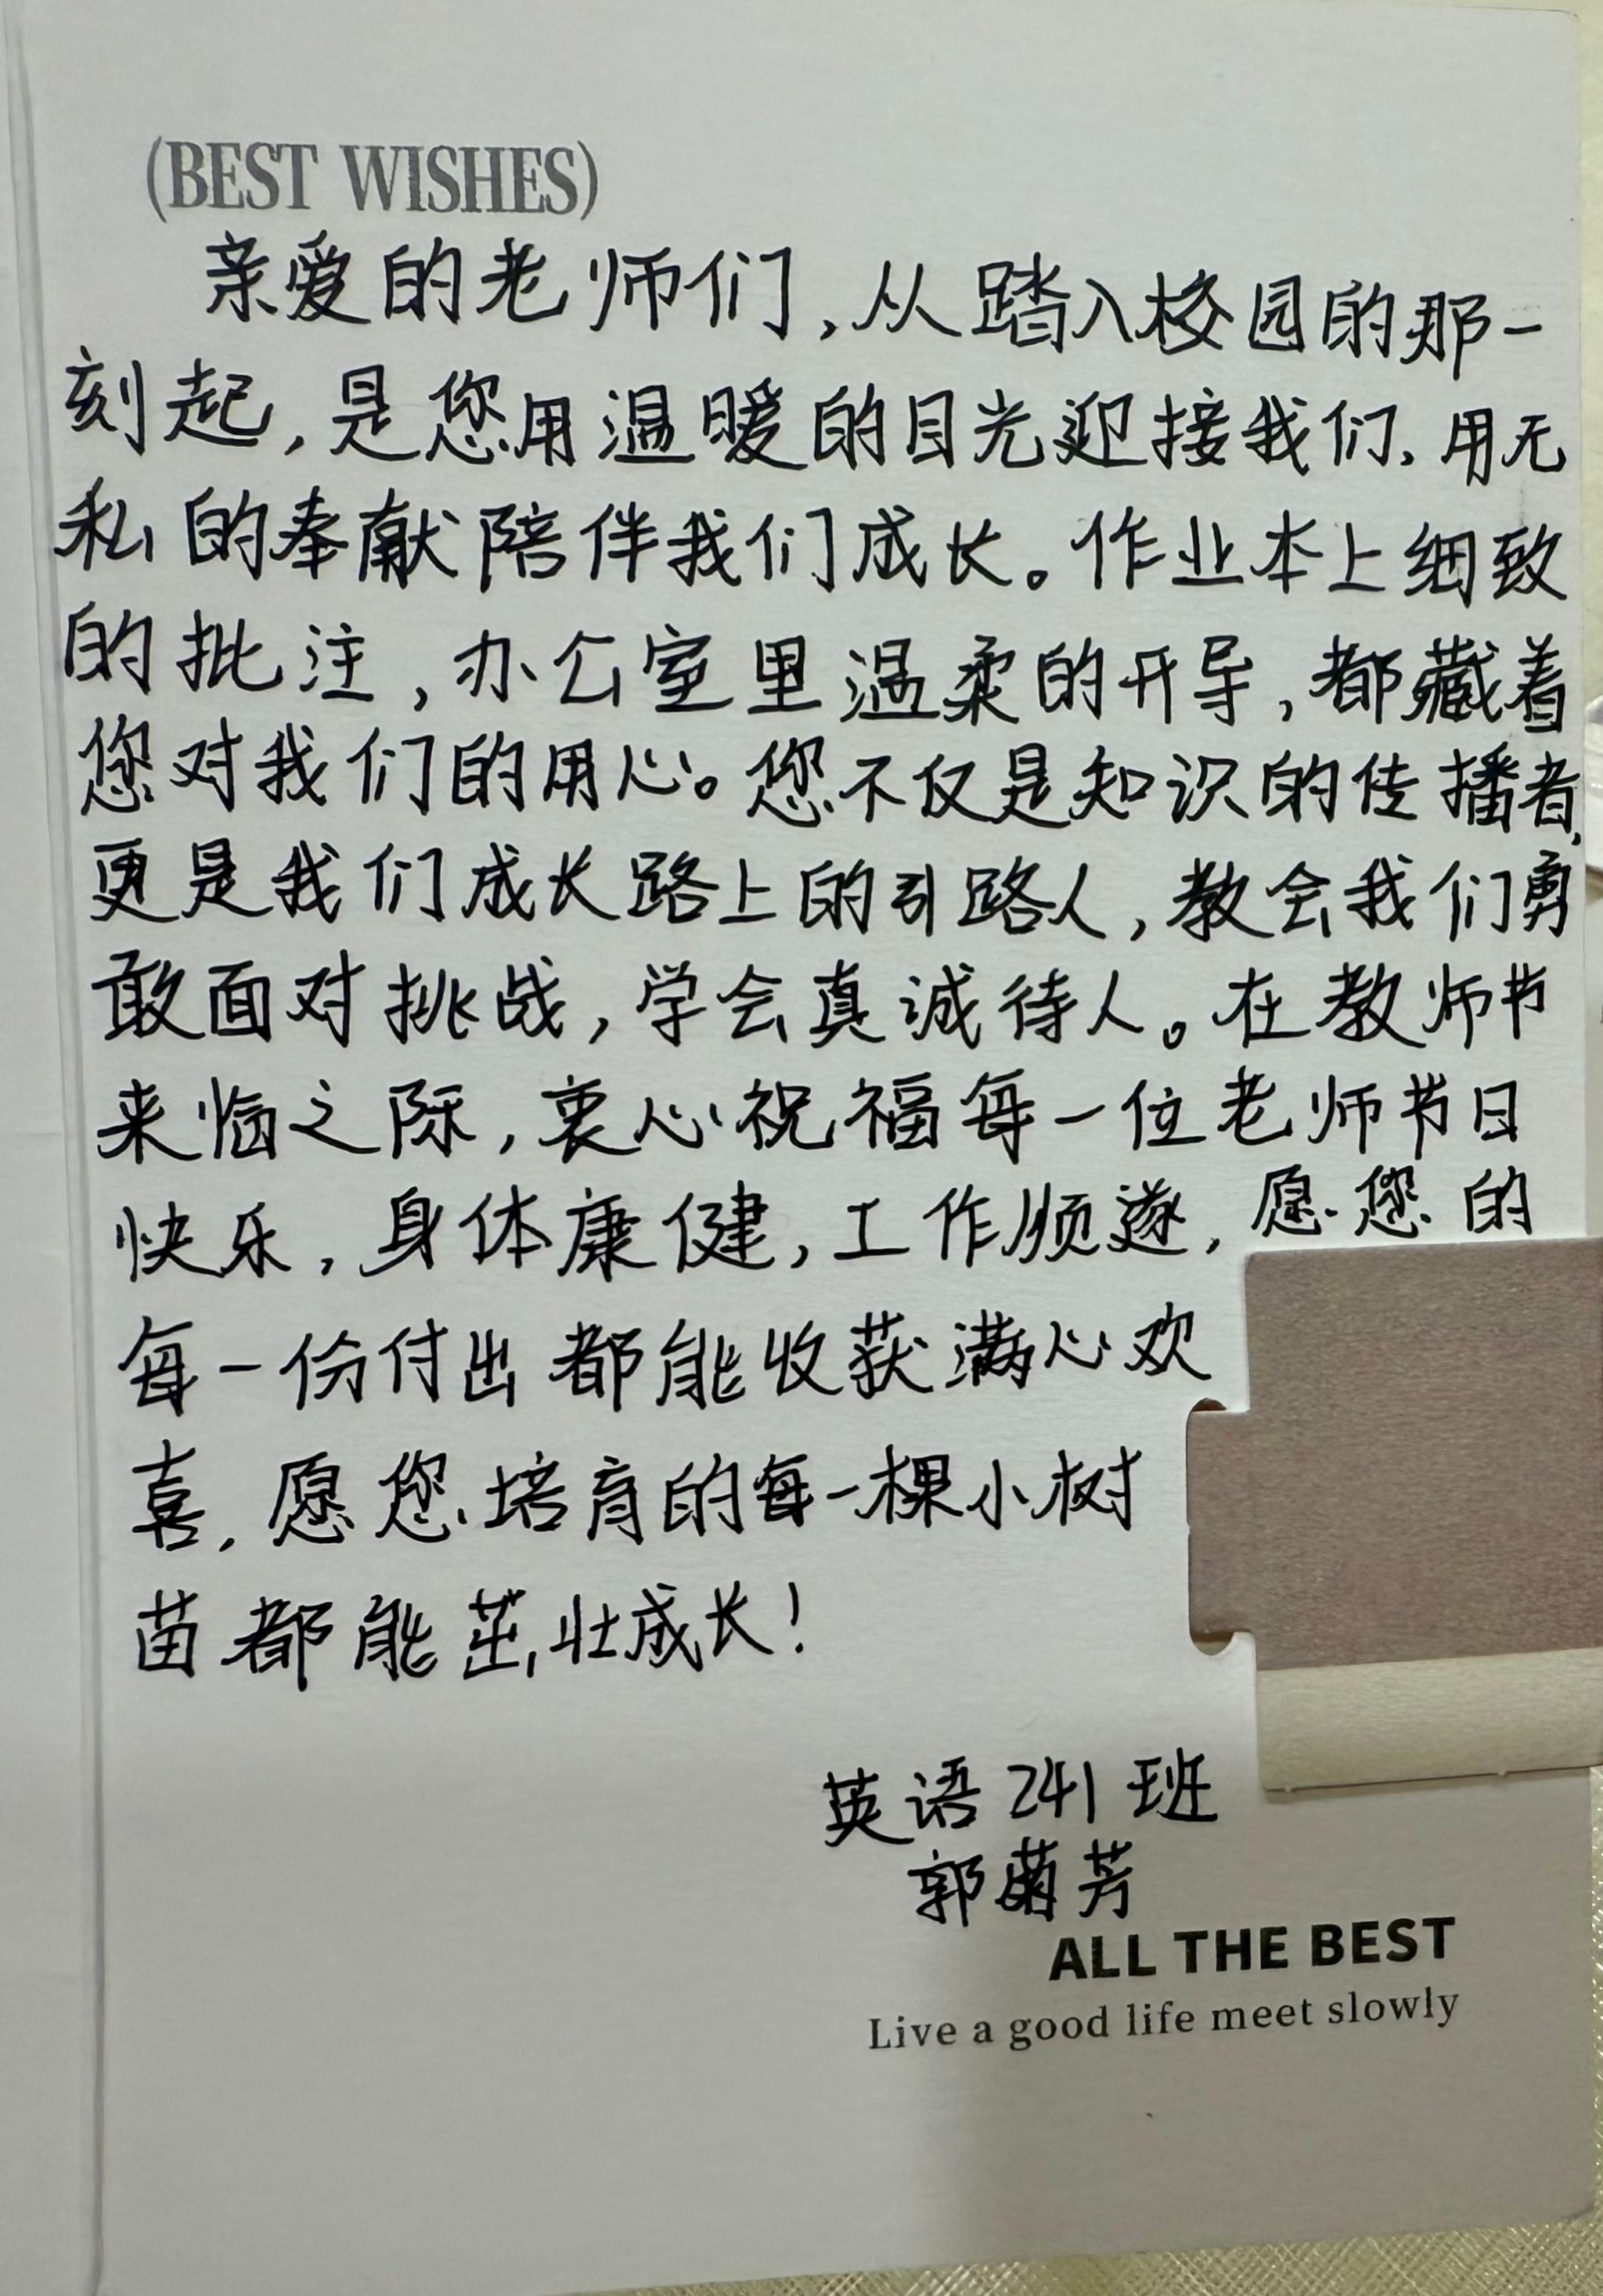 (BEST WISHES)
亲爱的老师们,从踏入校园的那一
刻起,是您用温暖的目光迎接我们,用无
私的奉献陪伴我们成长。作业本上细致
的批注,办公室里温柔的开导,都藏着
您对我们的用心。您不仅是知识的传播者,
更是我们成长路上的引路人,教会我们勇
敢面对挑战,学会真诚待人。在教师节
来临之际,衷心祝福每一位老师节日
快乐,身体康健,工作顺遂,愿您的
每一份付出都能收获满心欢
喜,愿您培育的每一棵小树
苗都能茁壮成长!
英语241班
郭菊芳
ALL THE BEST
Live a good life meet slowly